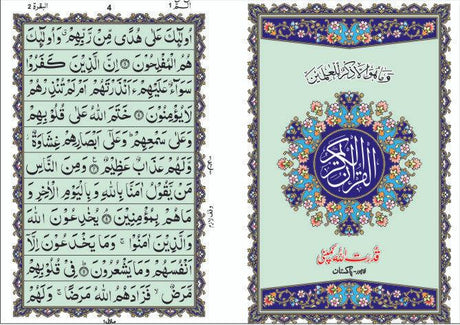 البقرة 2
4
الٓمّٓ 1
اُولٰٓئِكَ عَلٰى هُدًى مِّنْ رَّبِّهِمْ ۙ وَاُولٰٓئِكَ
هُمُ الْمُفْلِحُوْنَ ۝ اِنَّ الَّذِيْنَ كَفَرُوْا
سَوَآءٌ عَلَيْهِمْ ءَاَنْذَرْتَهُمْ اَمْ لَمْ تُنْذِرْهُمْ
لَا يُؤْمِنُوْنَ ۝ خَتَمَ اللهُ عَلٰى قُلُوْبِهِمْ
وَعَلٰى سَمْعِهِمْ ؕ وَعَلٰٓى اَبْصَارِهِمْ غِشَاوَةٌ
وَّلَهُمْ عَذَابٌ عَظِيْمٌ ۝ وَمِنَ النَّاسِ
مَنْ يَّقُوْلُ اٰمَنَّا بِاللهِ وَبِالْيَوْمِ الْاٰخِرِ وَ
مَا هُمْ بِمُؤْمِنِيْنَ ۝ يُخٰدِعُوْنَ اللهَ
وَالَّذِيْنَ اٰمَنُوْا ۚ وَمَا يَخْدَعُوْنَ اِلَّآ
اَنْفُسَهُمْ وَمَا يَشْعُرُوْنَ ۝ فِيْ قُلُوْبِهِمْ
مَّرَضٌ ۙ فَزَادَهُمُ اللهُ مَرَضًا ۚ وَلَهُمْ
وَمَا هُوَ اِلَّا ذِكْرٌ لِّلْعٰلَمِيْنَ
القرآن الكريم
قدرت اللہ کمپنی
لاہور۔پاکستان